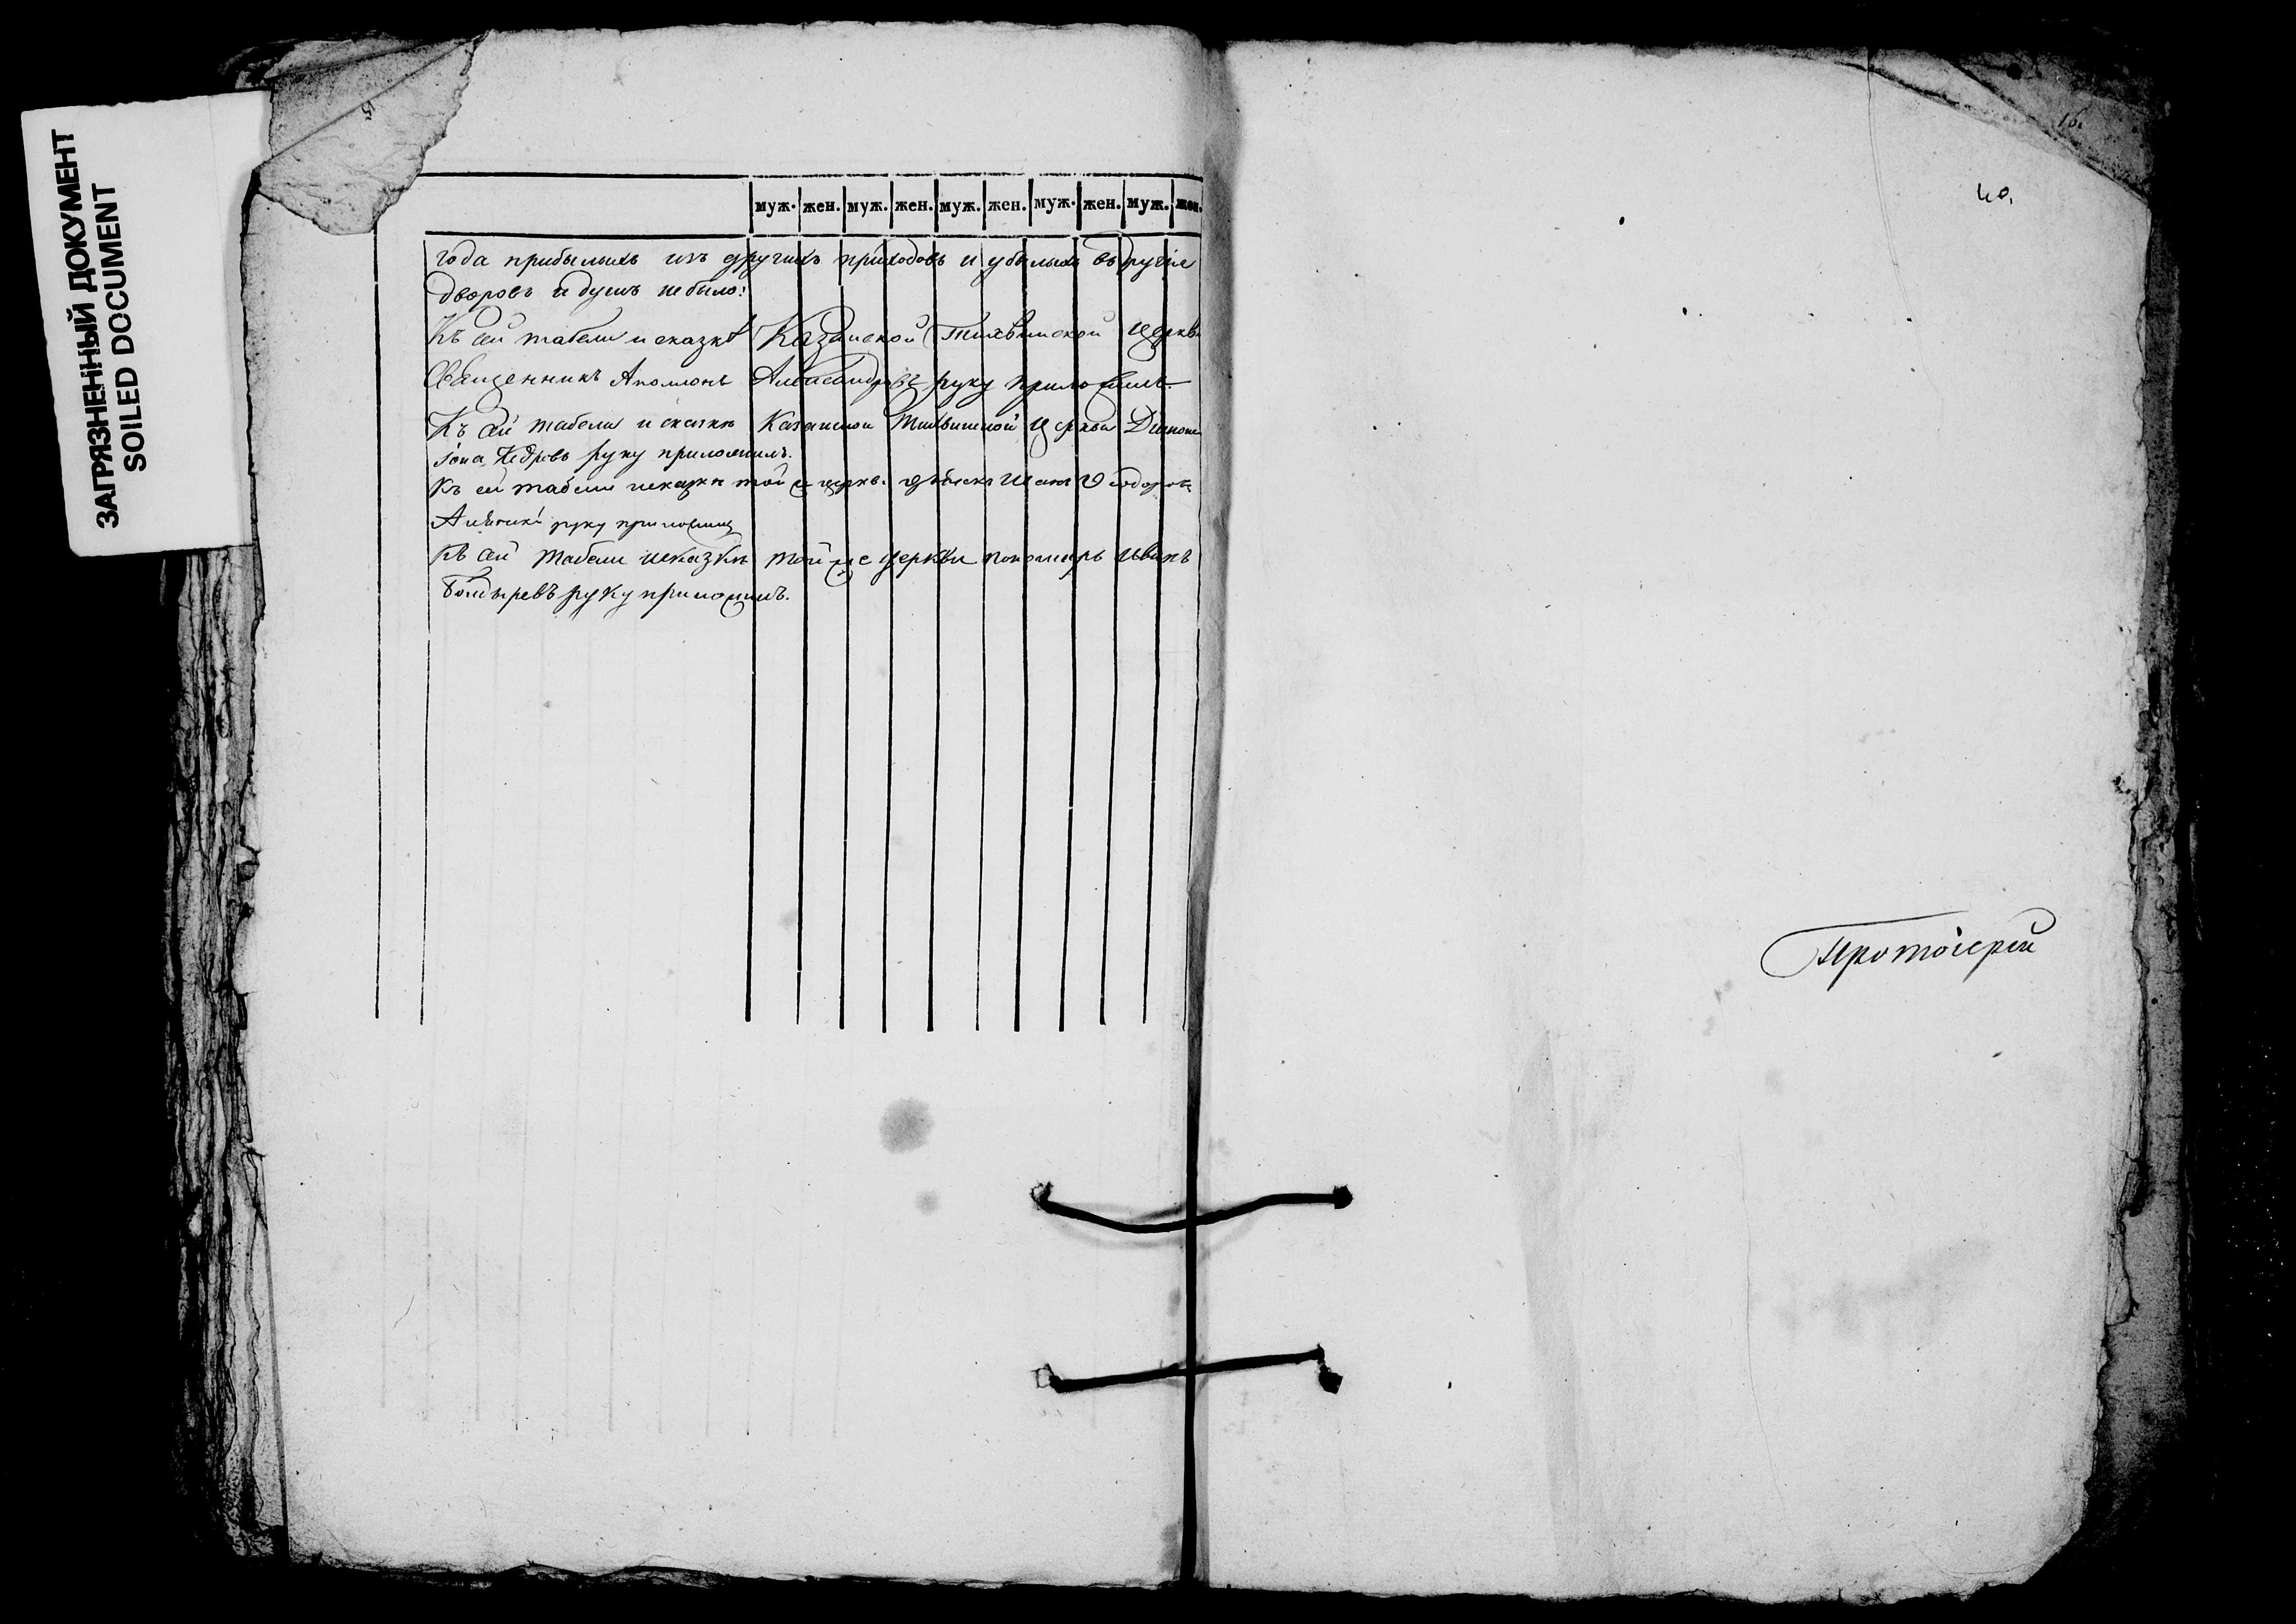 ЗАГРЯЗНЕННЫЙ ДОКУМЕНТ
SOILED DOCUMENT
муж. жен. муж. жен. муж. жен. муж. жен. муж. жен.
года прибылыхъ изъ другихъ приходовъ и убылыхъ въ другіе
дворовъ и душъ не было:
Къ сей табели и сказкѣ Казанской Тихвинской церкви
Священникъ Аполлонъ Александровъ руку приложилъ.
Къ сей табели и сказкѣ Казанской Тихвинской церкви Діаконъ
Іона Кедровъ руку приложилъ.
Къ сей табели и сказкѣ той церкви дьячекъ Ѳедоровъ
руку приложилъ
Къ сей табели и сказкѣ той же церкви пономарь Иванъ
Болдыревъ руку приложилъ.
16.
Протоіерей